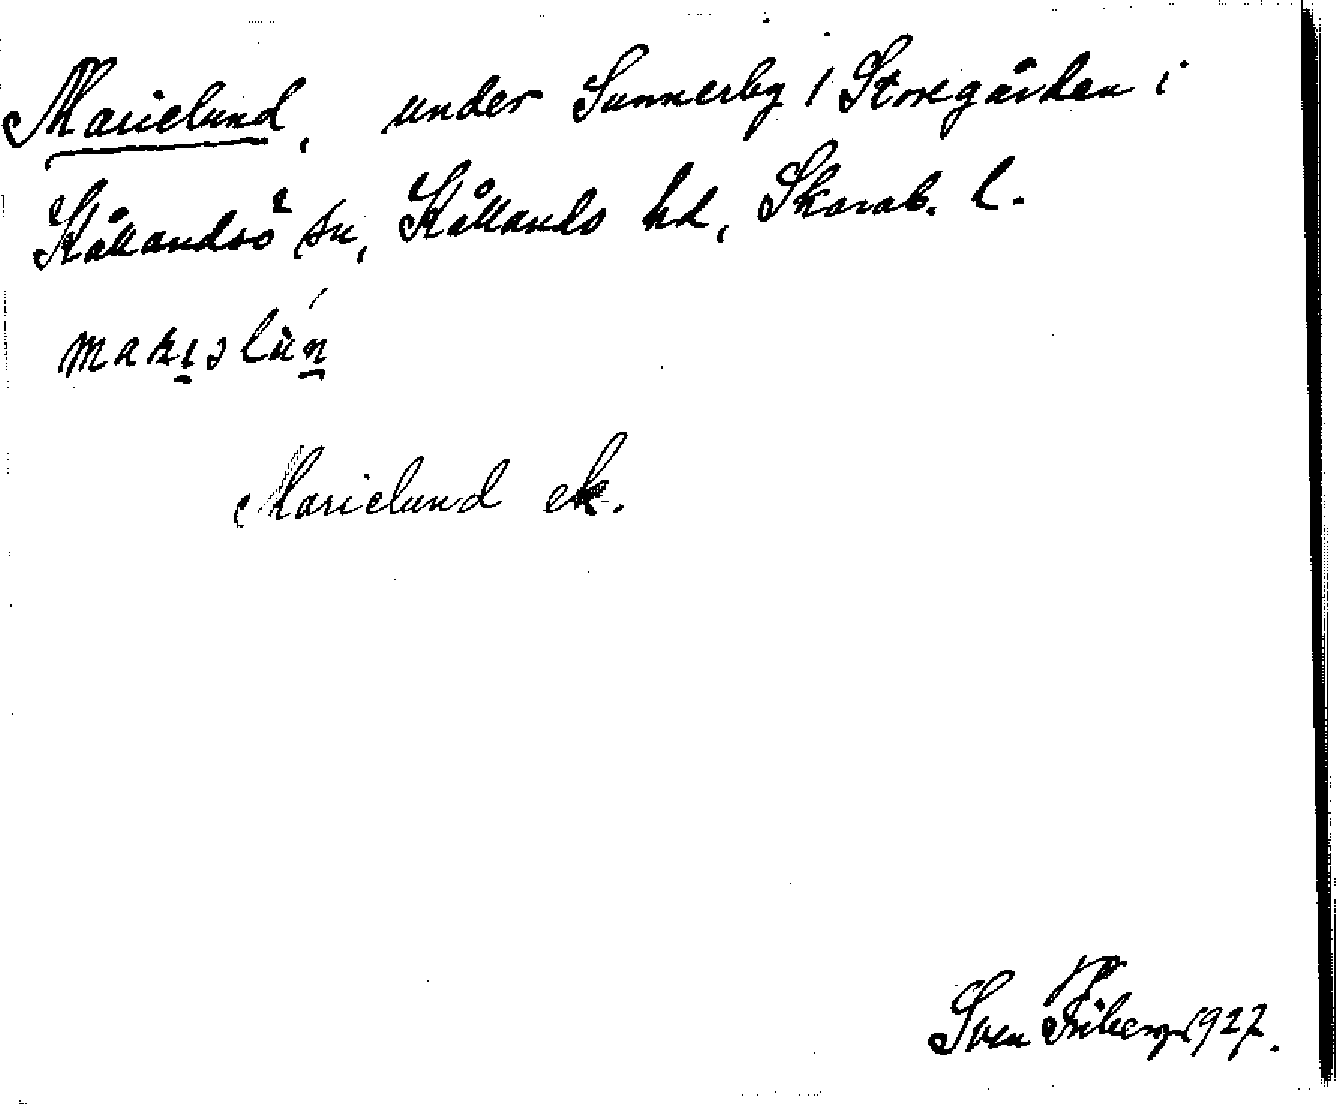 Marielund, under Sunnerby / Storegården i
Kållandsö sn, Kållands hd, Skarab. l.
Marielund ek.
Sven Friberg 1927.